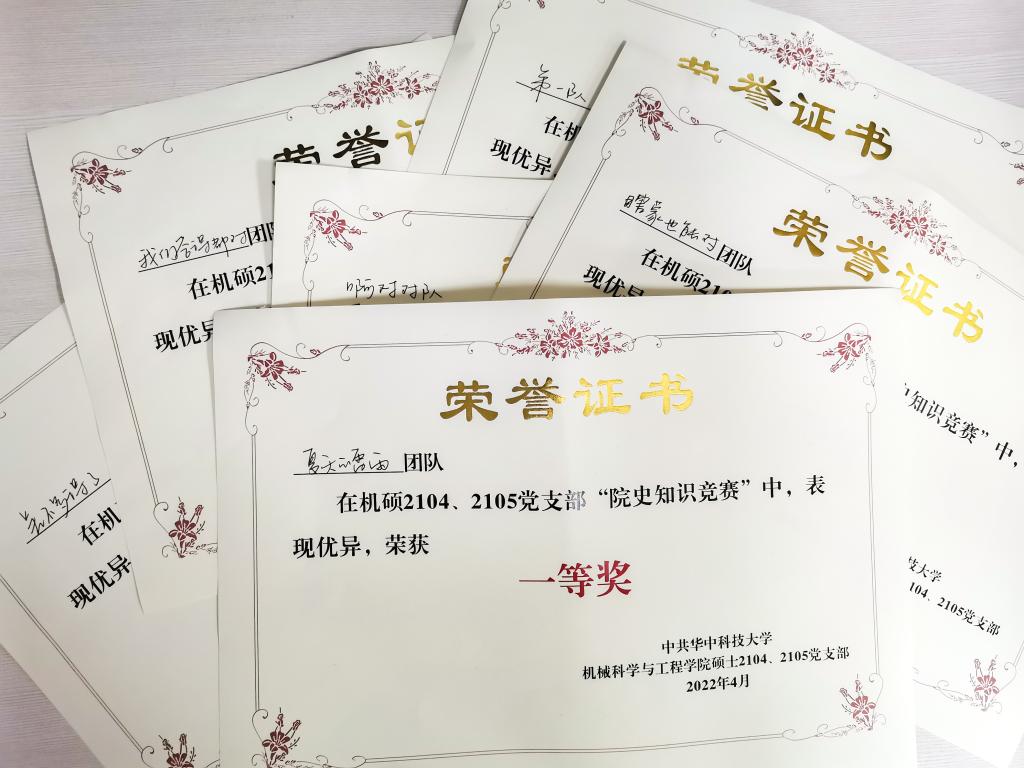 荣誉证书
第一队
在机
现优异
荣誉证
我们答得都对团队
在机硕21
现优异
啊对对队
荣誉证书
瞎蒙也能对团队
在机硕210
现优异
知识竞赛”中，
技大学
104、2105党支部
在机
现优异
荣誉证书
夏天的雷雨 团队
在机硕2104、2105党支部“院史知识竞赛”中，表
现优异，荣获
一等奖
中共华中科技大学
机械科学与工程学院硕士2104、2105党支部
2022年4月